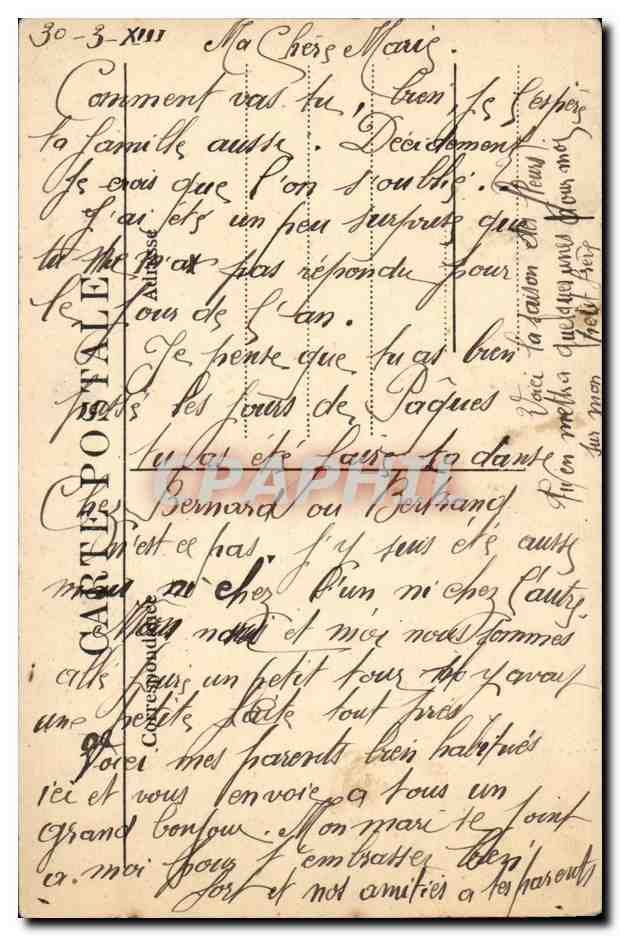 30-3-XIII Ma Chère Marie.
Comment vas tu, bien, je l'espère
ta famille aussi. Décidement
Je crois que l'on s'oublie.
J'ai été un peu surprise que
tu ne m'as pas répondu pour
le Jour de l'an.
Je pense que tu as bien
passé les jours de Pâques
tu as été faire ta danse
Chez Bernard ou Bertrand
n'est ce pas. J'y suis été aussi
mais ni chez l'un ni chez l'autre.
Mon mari et moi nous sommes
allé faire un petit tour il y avait
une petite fête tout près
Voici mes parents bien habitués
ici et vous envoie a tous un
grand bonjour. Mon mari se joint
a moi pour t'embrasser bien
fort et nos amitiés a tes parents
Voici la saison des fleurs
tu en mettra quelques unes pour moi
sur mon petit frère
CARTE POSTALE
Correspondance
Adresse
CPAPHIL